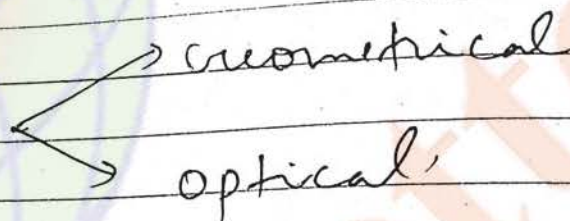 Geometrical
optical,